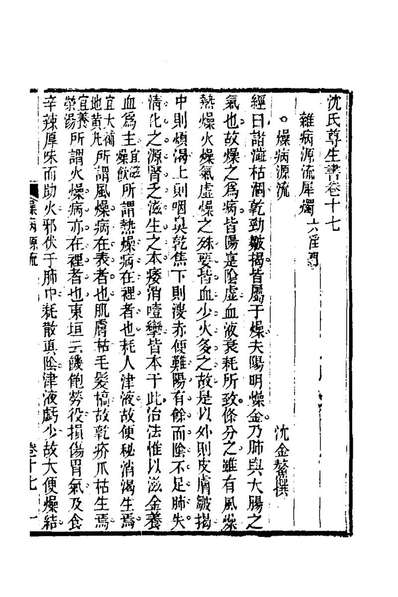 沈氏尊生書卷十七
雜病源流犀燭 六淫門
沈金鰲撰
燥病源流
經曰諸澁枯涸乾勁皴揭皆屬于燥夫陽明燥金乃肺與大腸之
氣也故燥之爲病皆陽實陰虛血液衰耗所致條分之雖有風燥
熱燥火燥氣虛燥之殊要皆血少火多之故是以外則皮膚皴揭
中則煩渴上則咽鼻乾焦下則溲赤便難陽有餘而陰不足肺失
清化之源腎乏滋生之本痿消噎攣皆本于此治法惟以滋金養
血爲主宜滋燥飲所謂熱燥病在裡者也耗人津液故便秘消渴生焉
宜大補地黃丸所謂風燥病在表者也肌膚枯毛髮槁故乾疥爪枯生焉
宜養榮湯所謂火燥病亦在裡者也東垣云饑飽勞役損傷胃氣及食
辛辣厚味而助火邪伏于肺中耗散眞陰津液虧少故大便燥結
燥病源流
卷十七
一